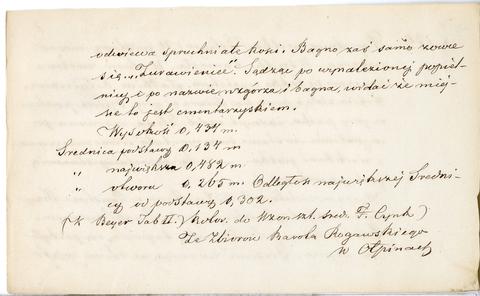 odwiewa spruchniałe kości. Bagno zaś samo zowie
się „Żurawieniec". Sądząc po wynalezionej popiel-
nicy i po nazwie wzgórza i bagna, widać że miej-
sce to jest cmentarzyskiem.
Wysokość 0,434 m.
Średnica podstawy 0,134 m
„ największa 0,482 m
„ otworu 0,265 m. Odległość największej Średni-
cy od podstawy 0,302.
Beyer Tab II.) kolor. do Wzor. szt. śred. F. Cynk)
Ze Zbiorów Karola Rogawskiego
w Ołpinach